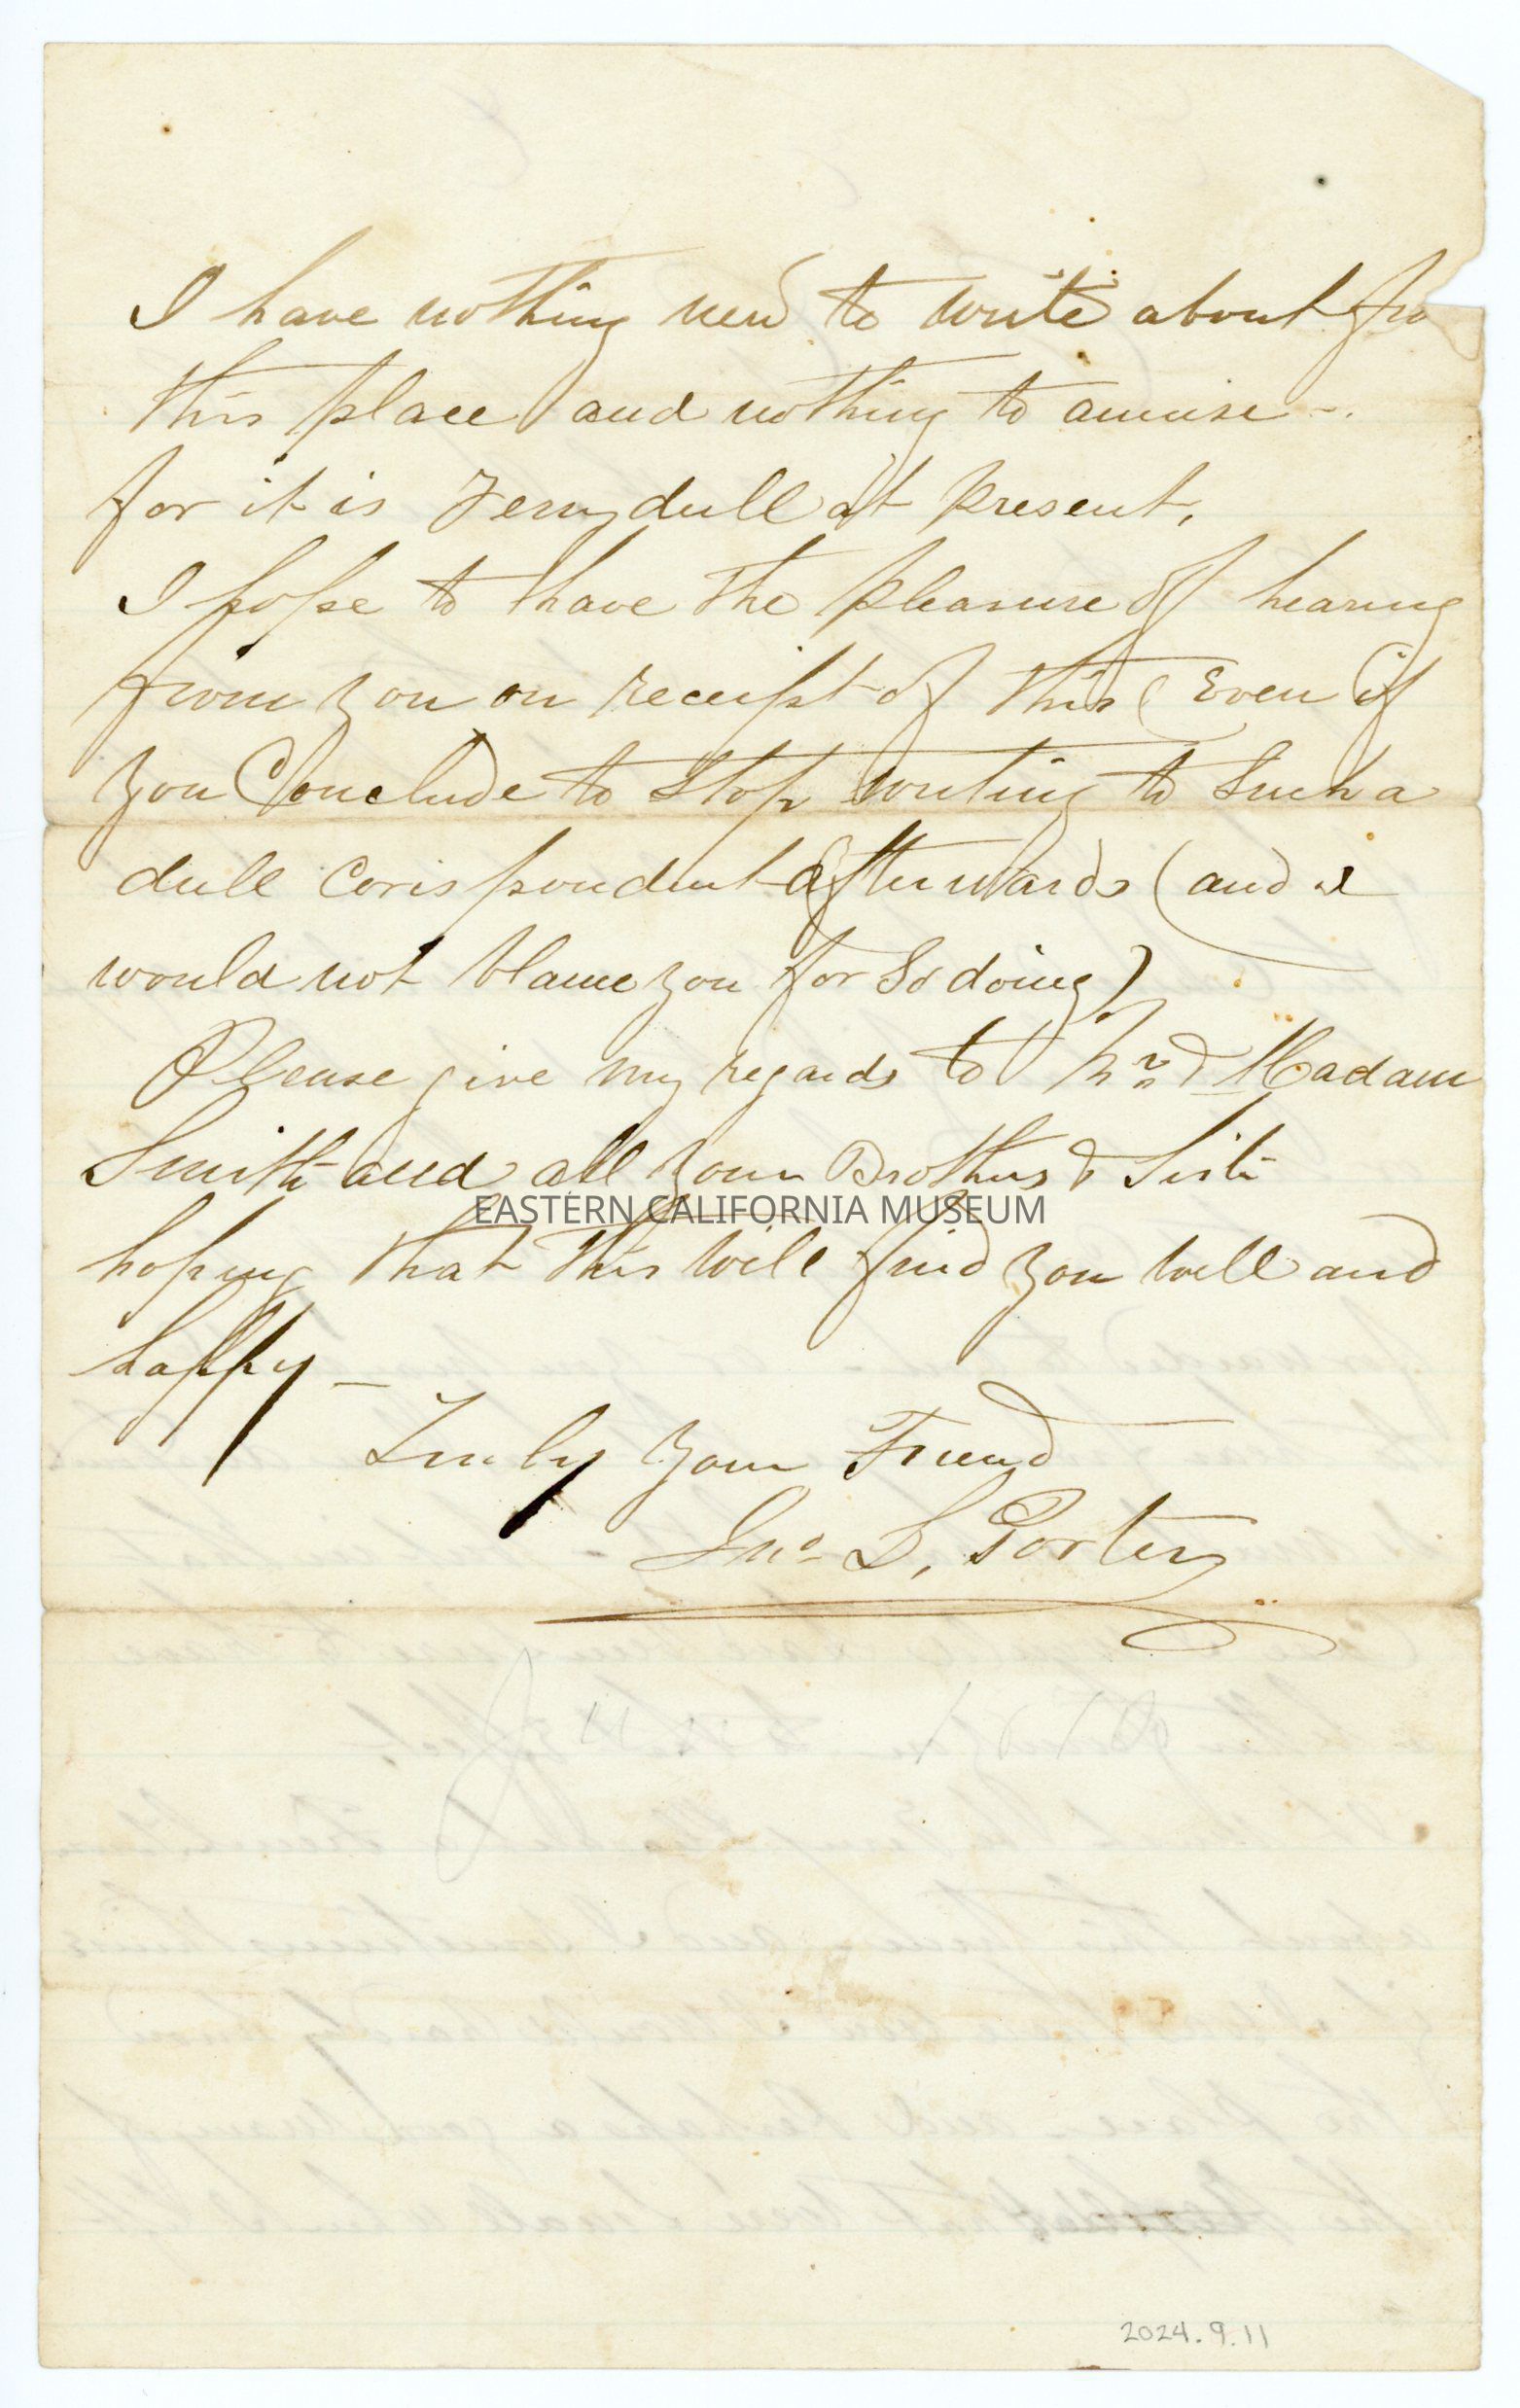 I have nothing new to write about fro
this place and nothing to amuse -.
for it is very dull at present,
I hope to have the pleasure of hearing
from you on receipt of this (Even if
you Conclude to stop writing to Such a
dull Corispondent afterwards (and I
would not blame you for So doing)
Please give my regards to Mr & Madam
Smith and all your Brothers & Sister
hoping that this will find you well and
happy —
Truly your Friend
Jno. L. Porter
EASTERN CALIFORNIA MUSEUM
2024.9.11